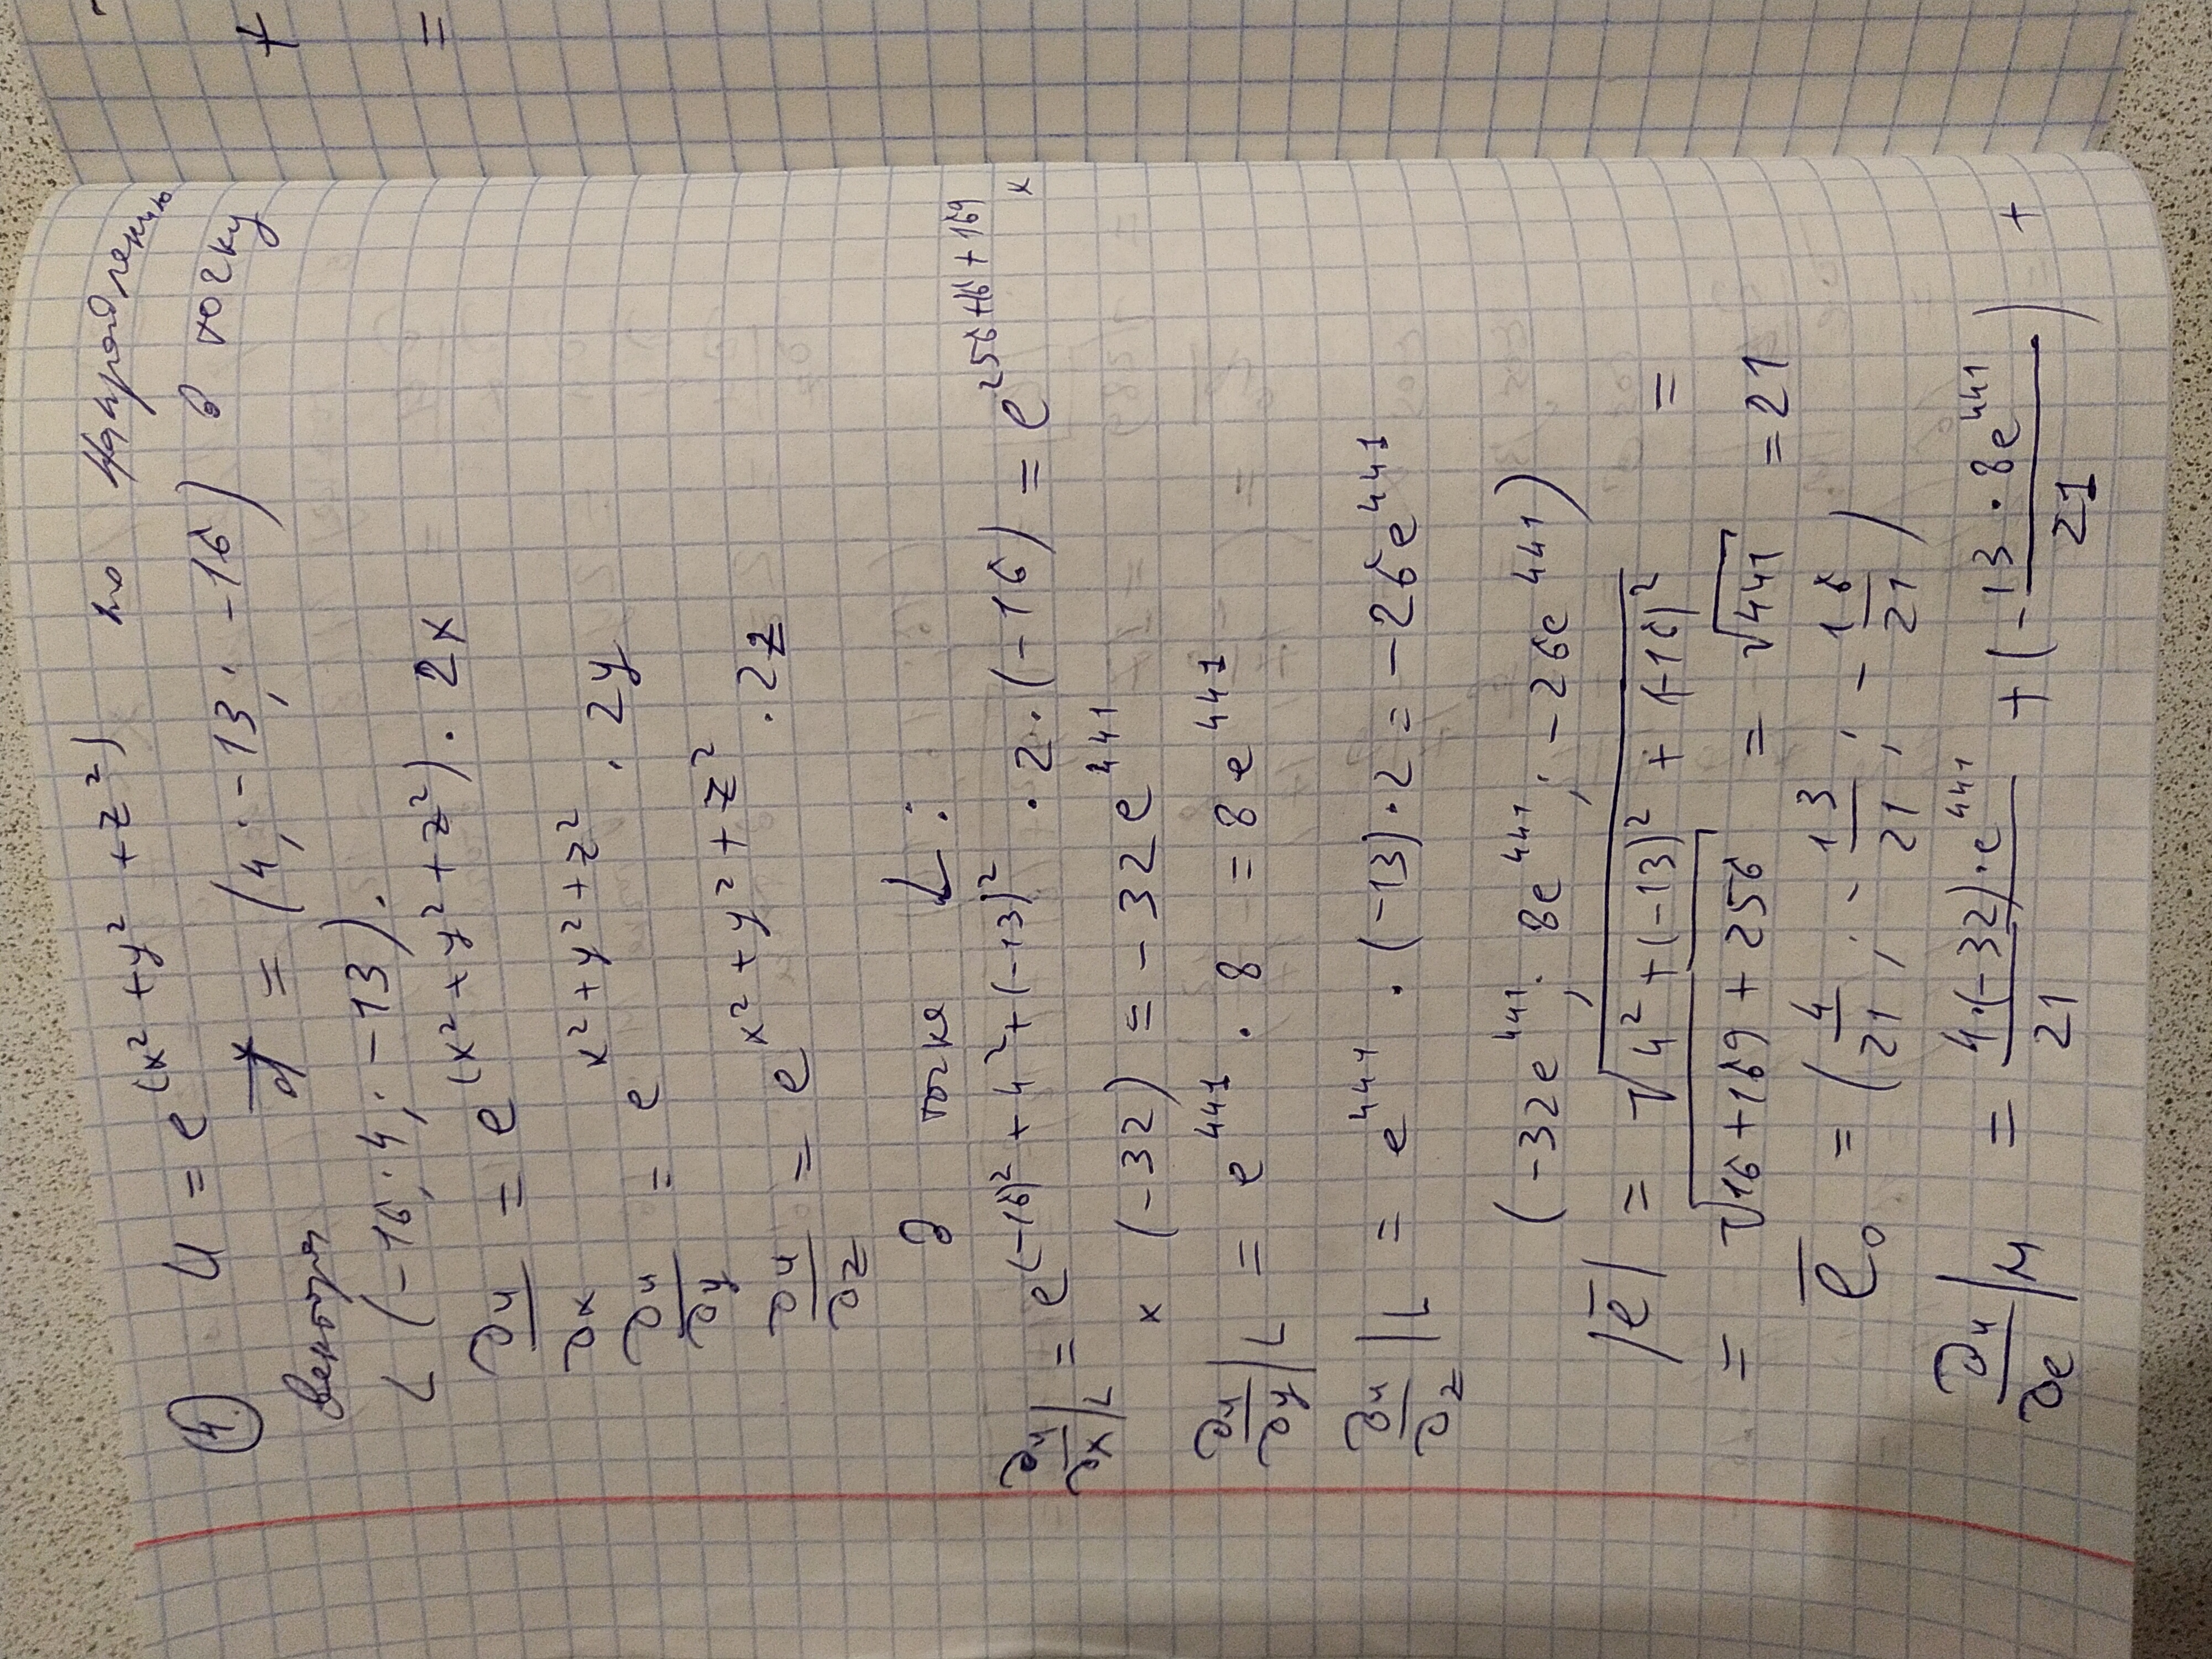 ④ U = e^(x² + y² + z²) по направлению
вектора d = (4; -13; -16) в точку
L (-16; 4; -13).
∂u/∂x = e^(x² + y² + z²) · 2x
∂u/∂y = e^x² + y² + z² · 2y
∂u/∂z = e^x² + y² + z² · 2z
В точке L:
∂u/∂x|L = e^(-16)² + 4² + (-13)² · 2 · (-16) = e^256+16+169 ×
× (-32) = -32e^441
∂u/∂y|L = e^441 · 8 = 8e^441
∂u/∂z|L = e^441 · (-13) · 2 = -26e^441
(-32e^441; 8e^441; -26e^441)
|e̅| = √4² + (-13)² + (-16)² =
= √16 + 169 + 256 = √441 = 21
e̅₀ = (4/21; -13/21; -16/21)
∂u/∂e|M = 4·(-32)·e^441/21 + (-13·8e^441/21) +
+
=